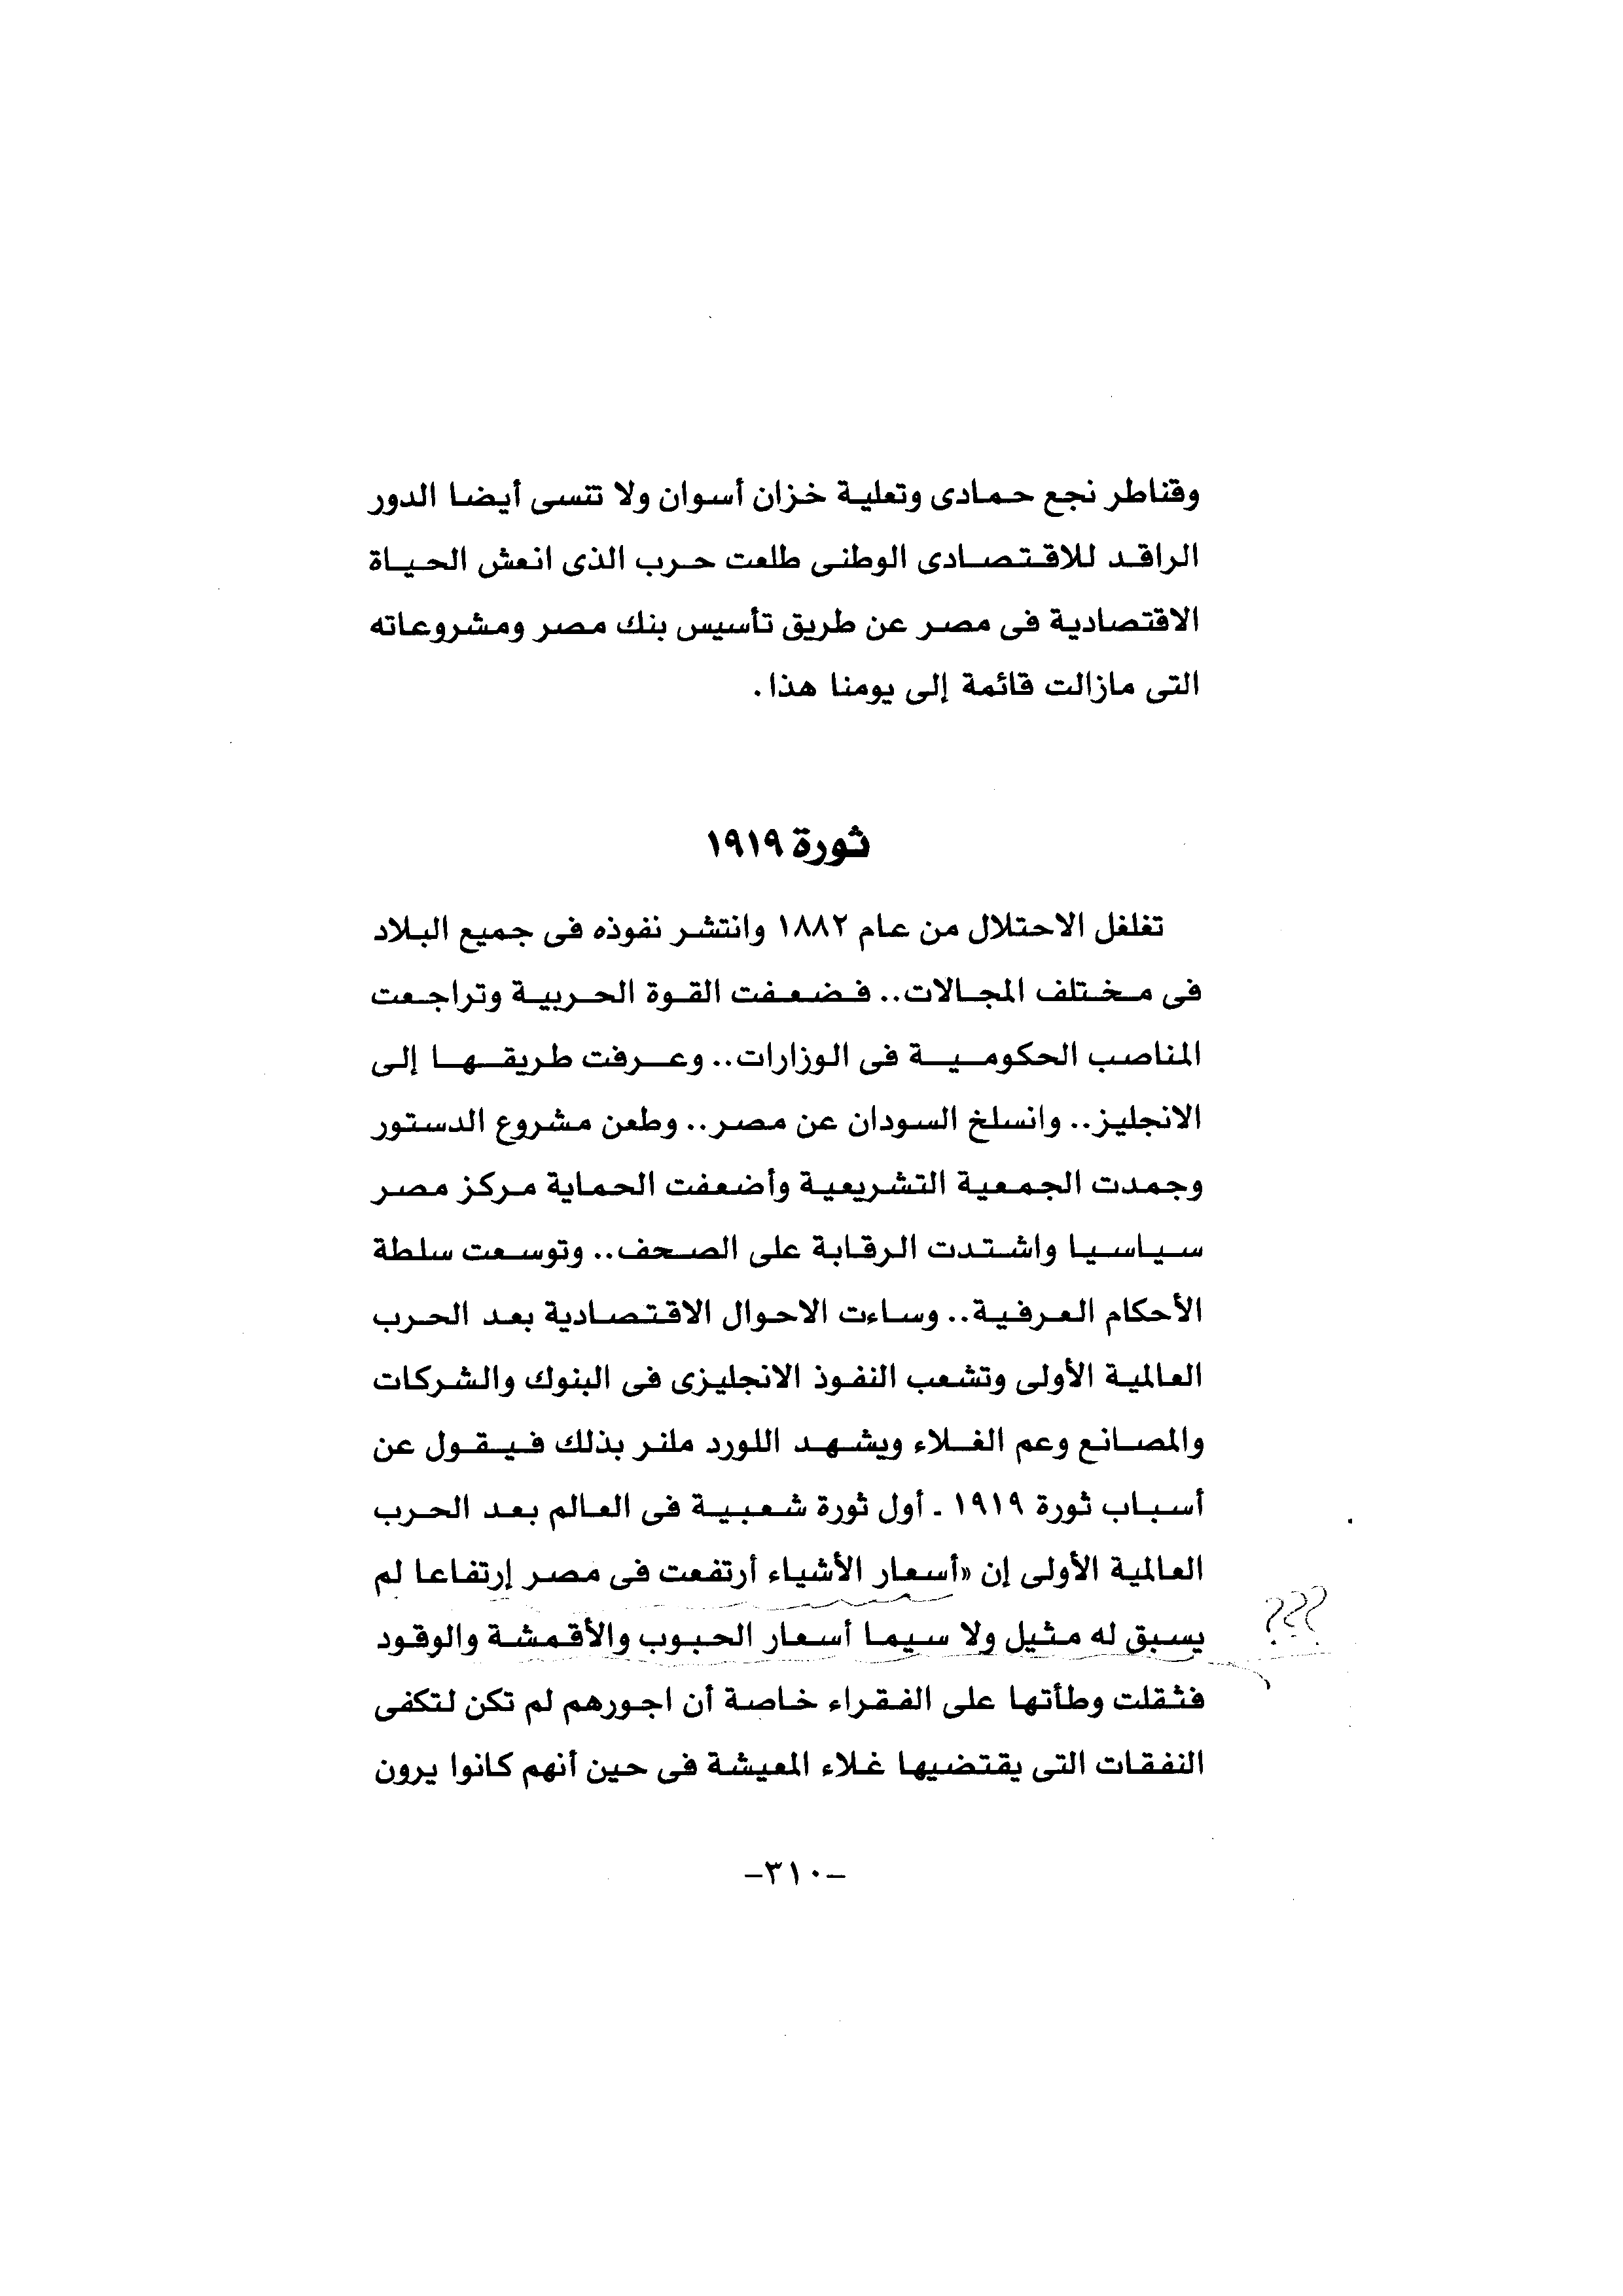 وقناطر نجع حمادى وتعلية خزان أسوان ولا تنسى أيضا الدور
الراقد للاقتصادى الوطنى طلعت حرب الذى انعش الحياة
الاقتصادية فى مصر عن طريق تأسيس بنك مصر ومشروعاته
التى مازالت قائمة إلى يومنا هذا.
ثورة ١٩١٩
تغلغل الاحتلال من عام ١٨٨٢ وانتشر نفوذه فى جميع البلاد
فى مختلف المجالات.. فضعفت القوة الحربية وتراجعت
المناصب الحكومية فى الوزارات.. وعرفت طريقها إلى
الانجليز.. وانسلخ السودان عن مصر.. وطعن مشروع الدستور
وجمدت الجمعية التشريعية وأضعفت الحماية مركز مصر
سياسيا واشتدت الرقابة على الصحف.. وتوسعت سلطة
الأحكام العرفية.. وساءت الاحوال الاقتصادية بعد الحرب
العالمية الأولى وتشعب النفوذ الانجليزى فى البنوك والشركات
والمصانع وعم الغلاء ويشهد اللورد ملنر بذلك فيقول عن
أسباب ثورة ١٩١٩ ـ أول ثورة شعبية فى العالم بعد الحرب
العالمية الأولى إن «أسعار الأشياء أرتفعت فى مصر إرتفاعا لم
يسبق له مثيل ولا سيما أسعار الحبوب والأقمشة والوقود
؟؟؟
فثقلت وطأتها على الفقراء خاصة أن اجورهم لم تكن لتكفى
النفقات التى يقتضيها غلاء المعيشة فى حين أنهم كانوا يرون
-٣١٠-